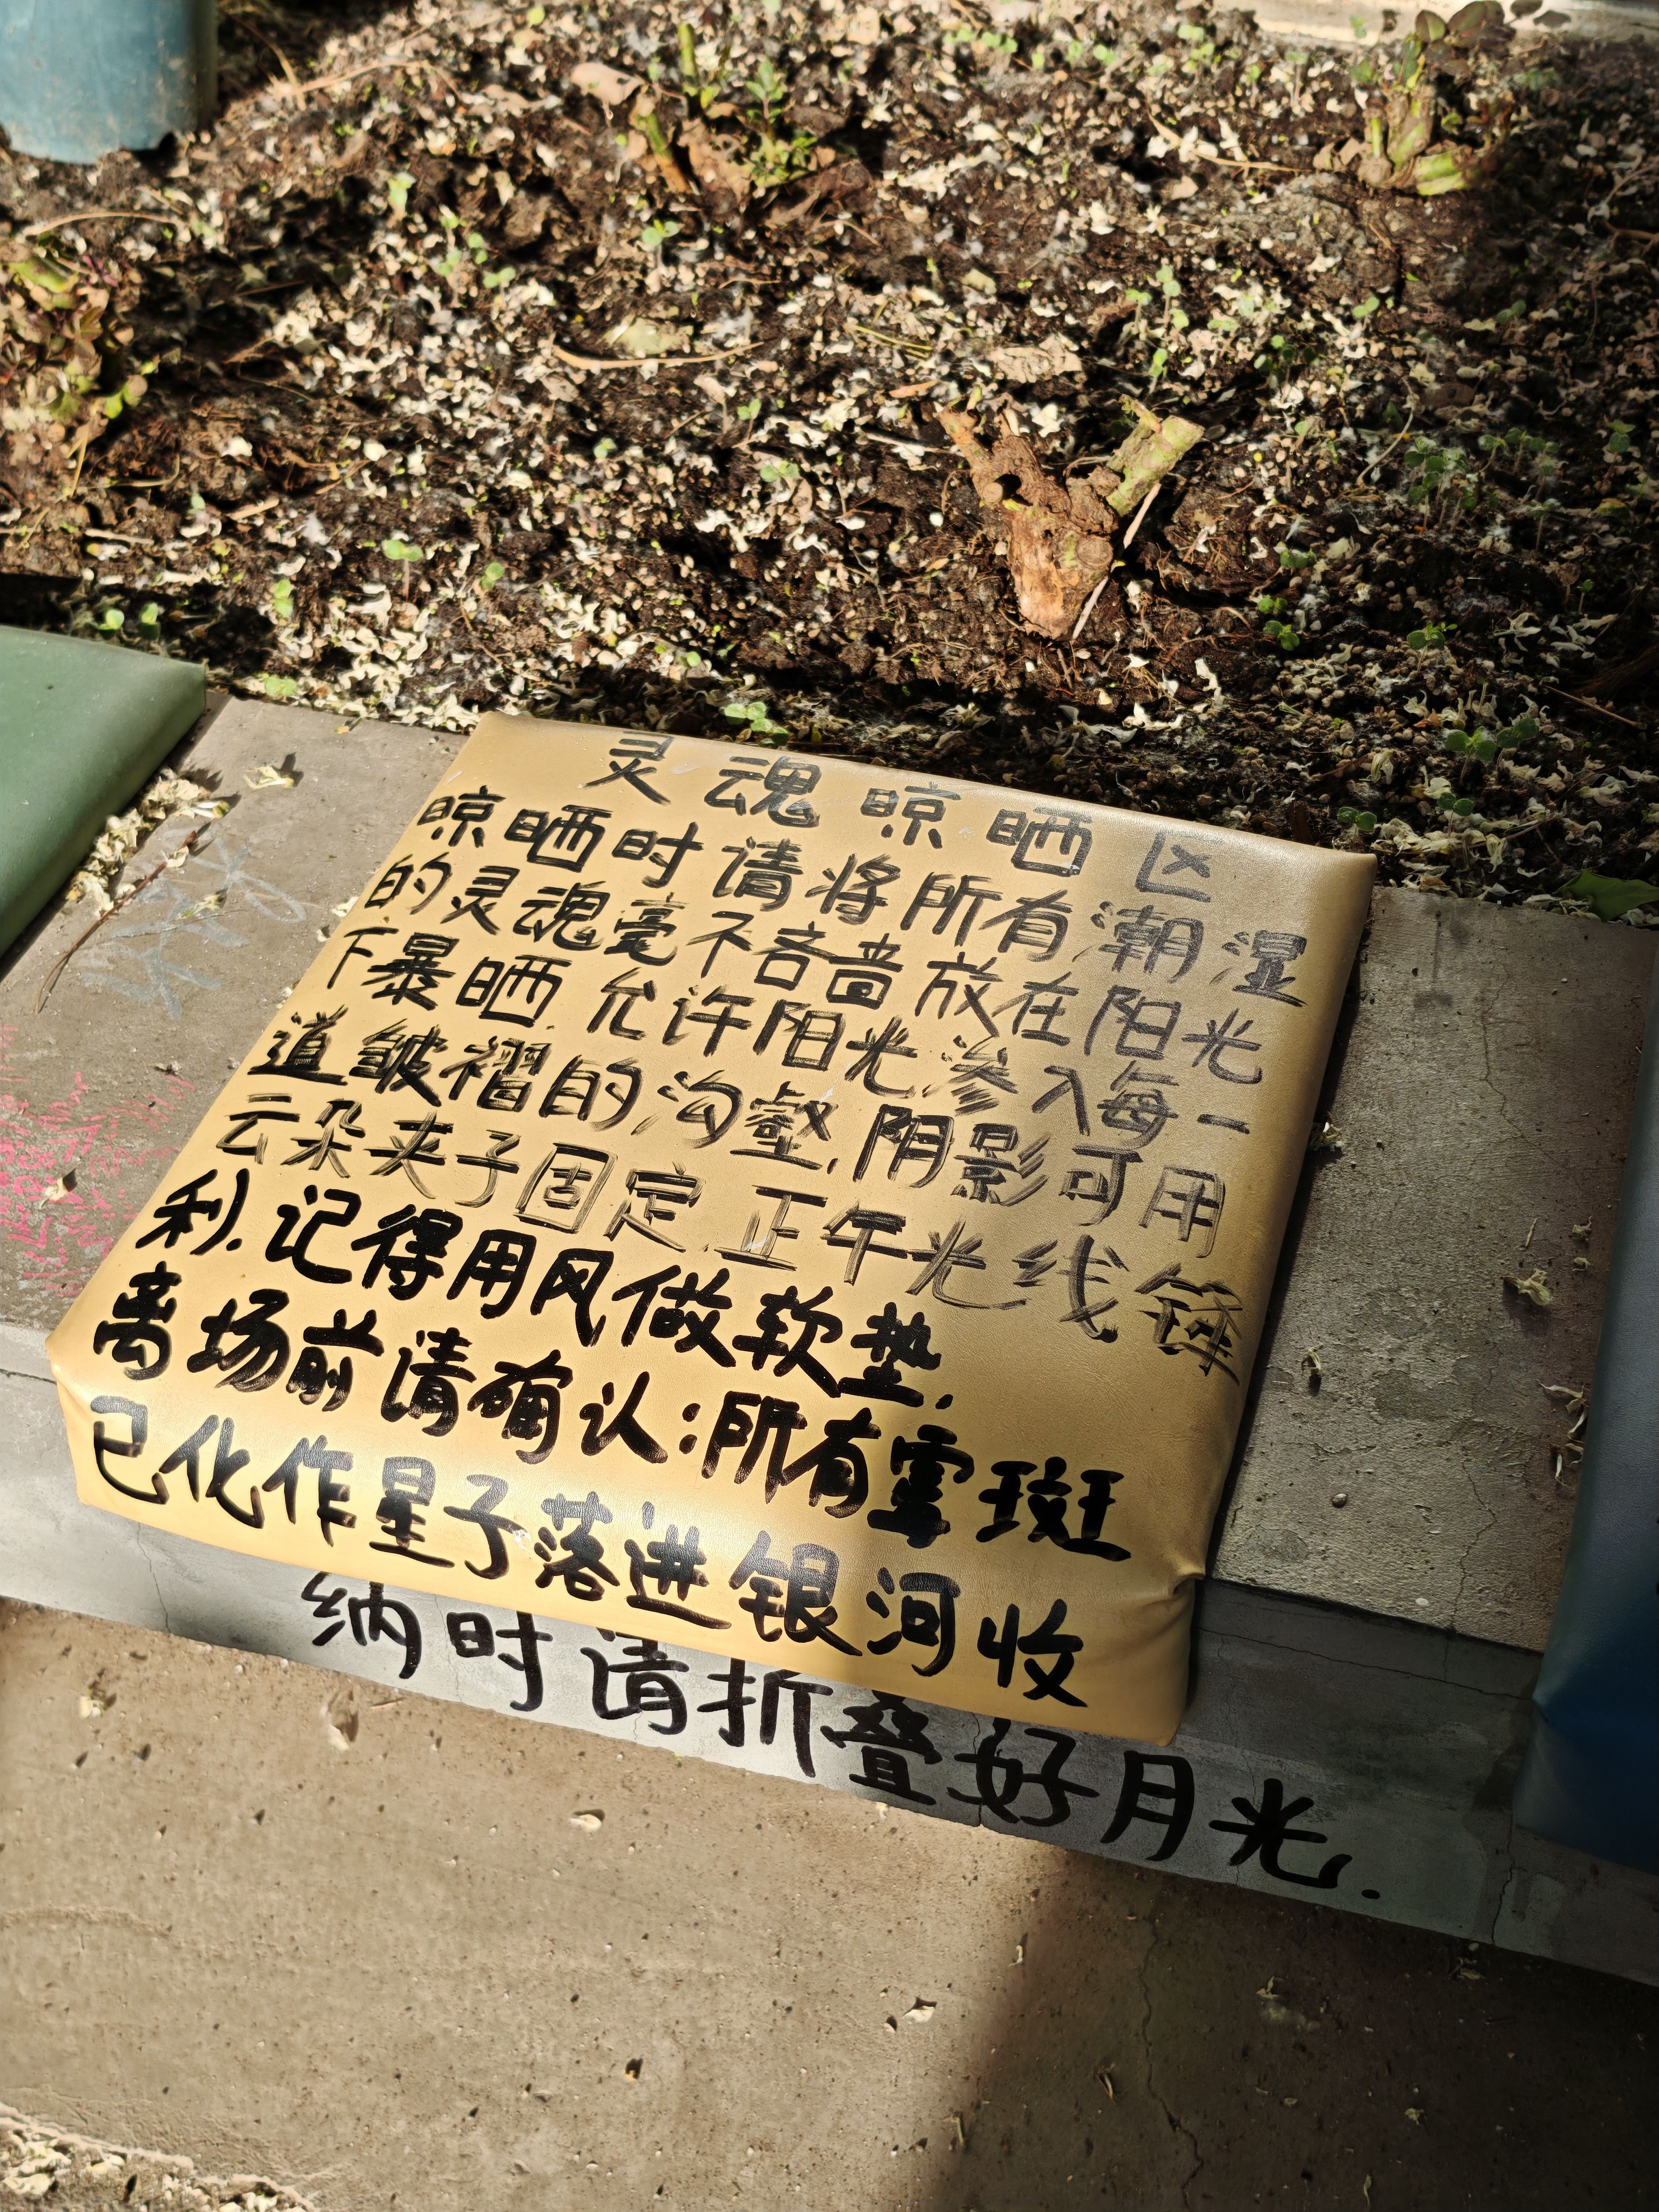 灵魂晾晒区
晾晒时请将所有潮湿
的灵魂毫不吝啬放在阳光
下暴晒.允许阳光渗入每一
道皱褶的沟壑.阴影可用
云朵夹子固定.正午光线锋
利.记得用风做软垫.
离场前请确认:所有霉斑
已化作星子落进银河收
纳时请折叠好月光.